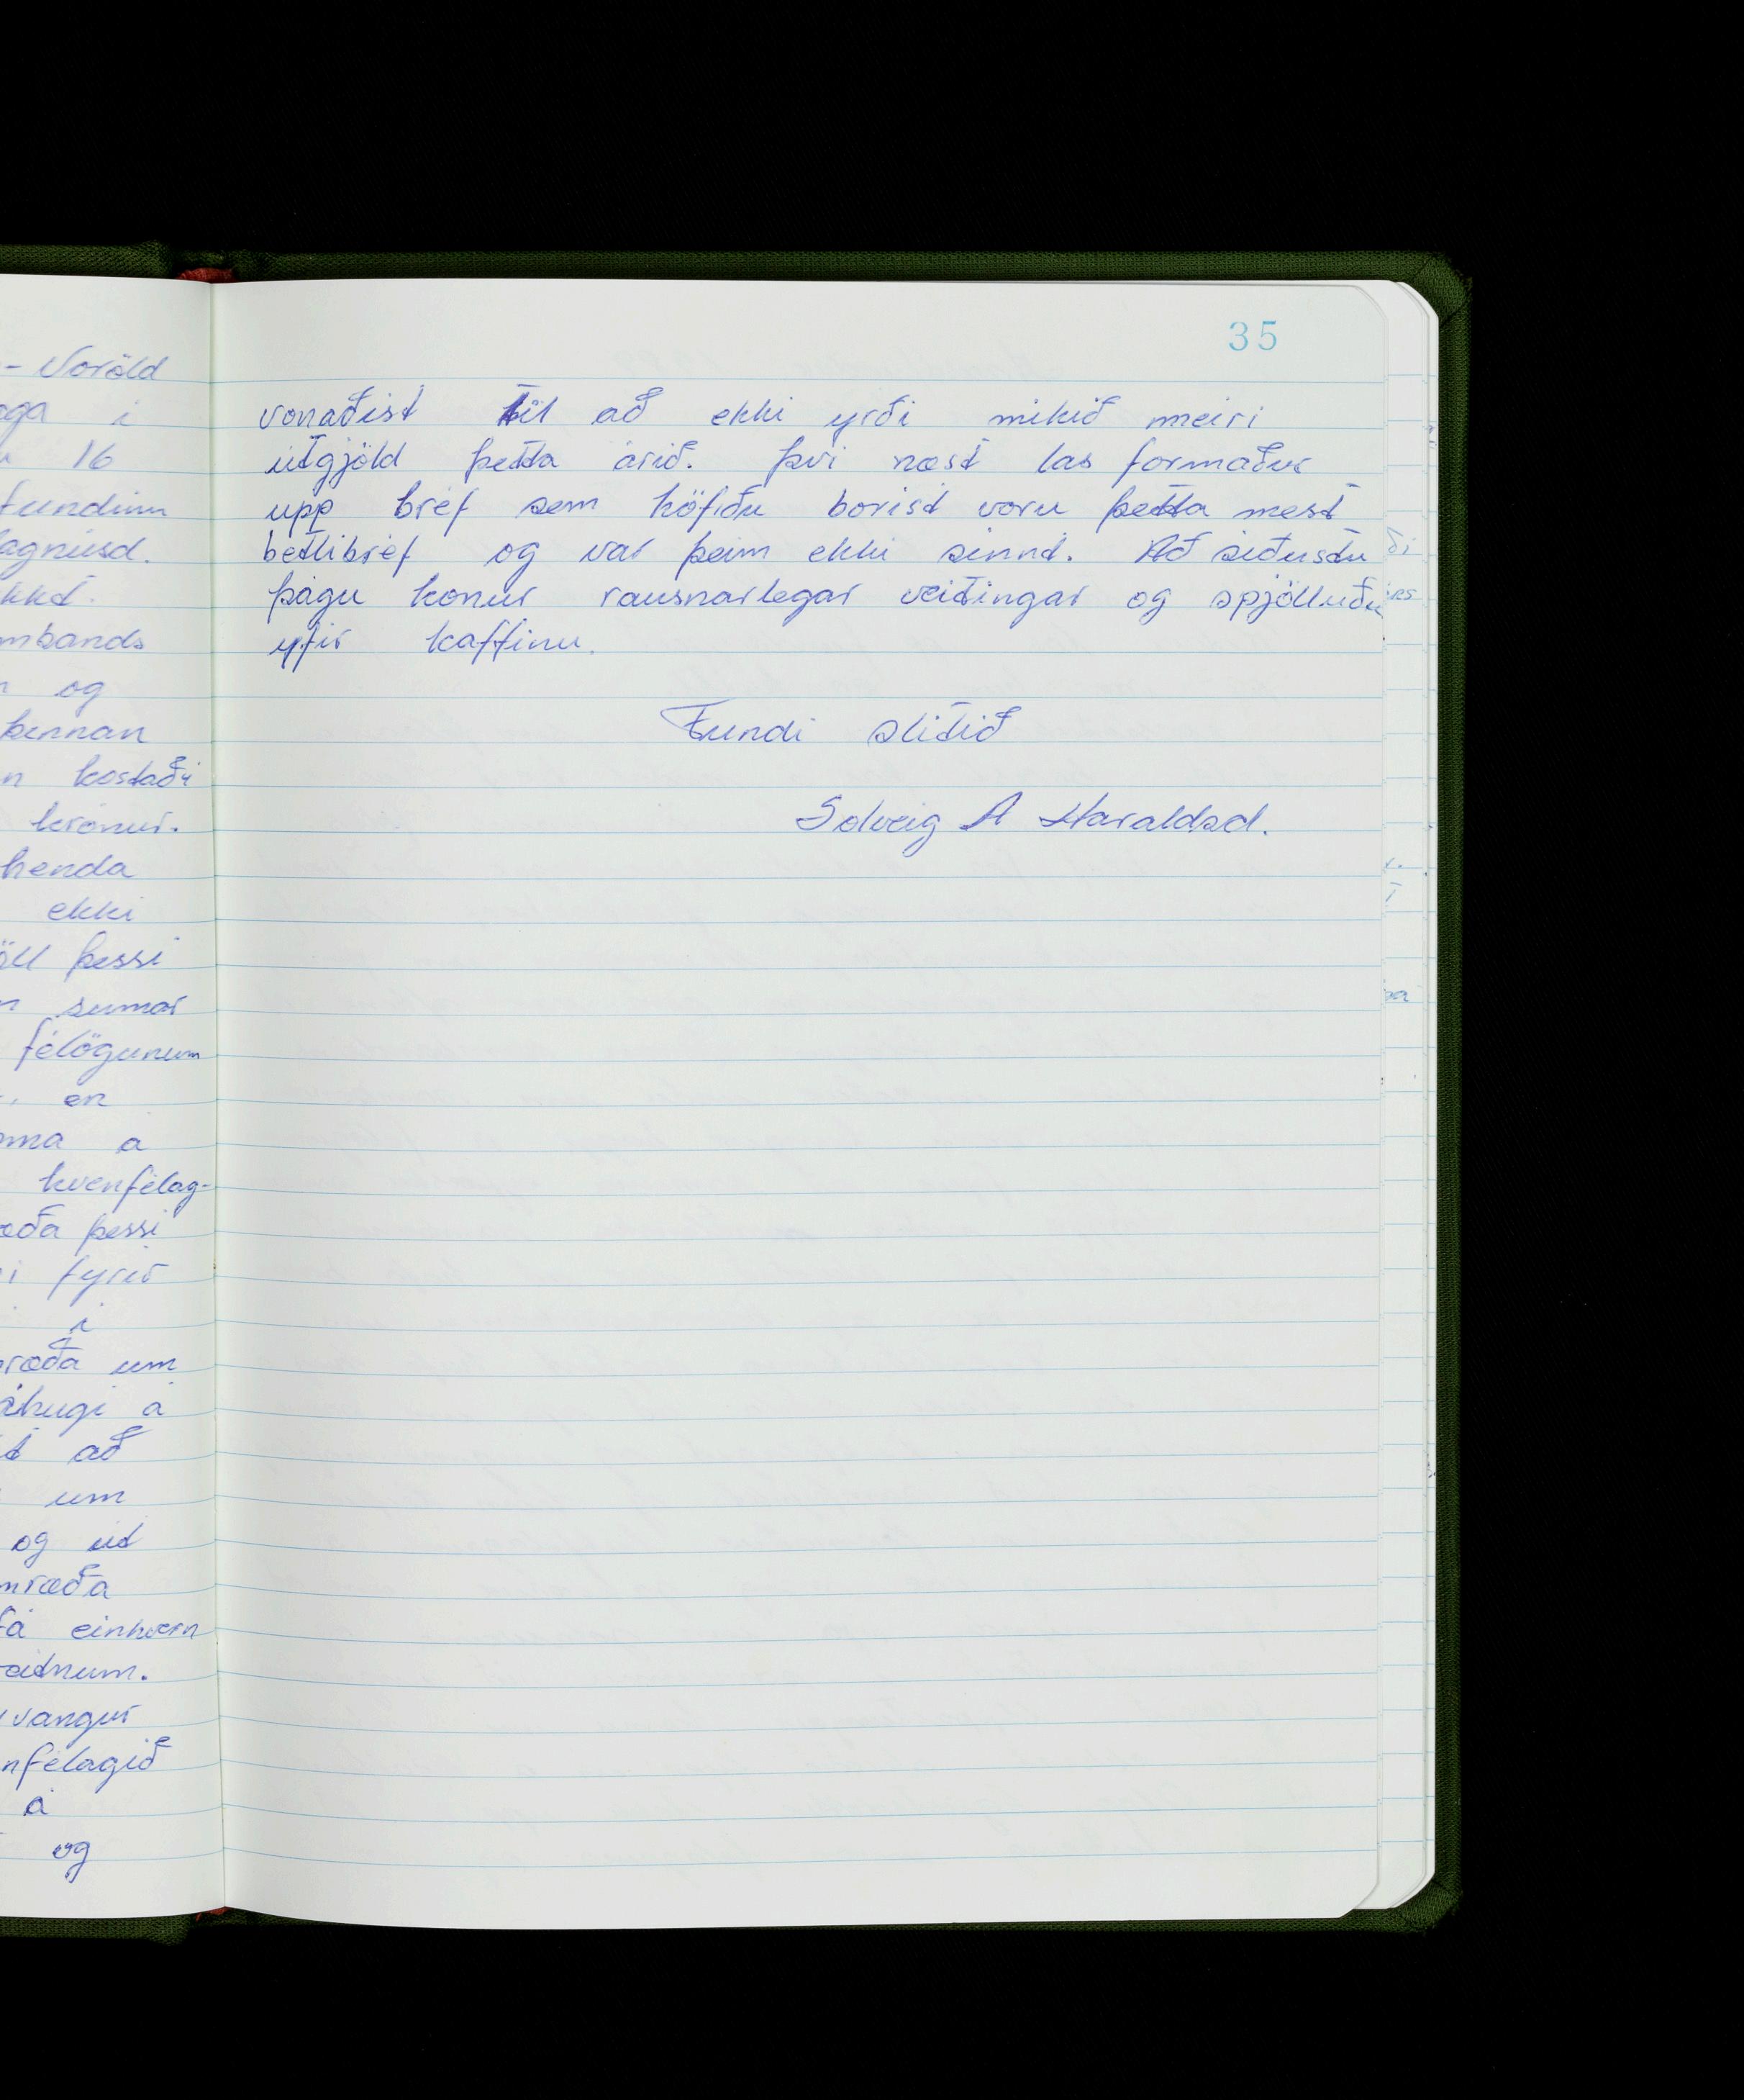 - Voröld
i
16
fundinn
agnúsd.
mbands
og
þennan
kostaði
krónur.
henda
ekki
öll þessi
sumar
félögunum
en
á
kvenfélag-
þessi
fyrir
í
um
áhugi á
að
um
og út
einhvern
vangur
á
og
35
vonaðist til að ekki yrði mikið meiri
útgjöld þetta árið. Því næst las formaður
upp bréf sem höfðu borist voru þetta mest
betlibréf og var þeim ekki sinnt. Að síðustu
þágu konur rausnarlegar veitingar og spjölluðu
yfir kaffinu.
Fundi slitið
Solveig A Haraldsd.